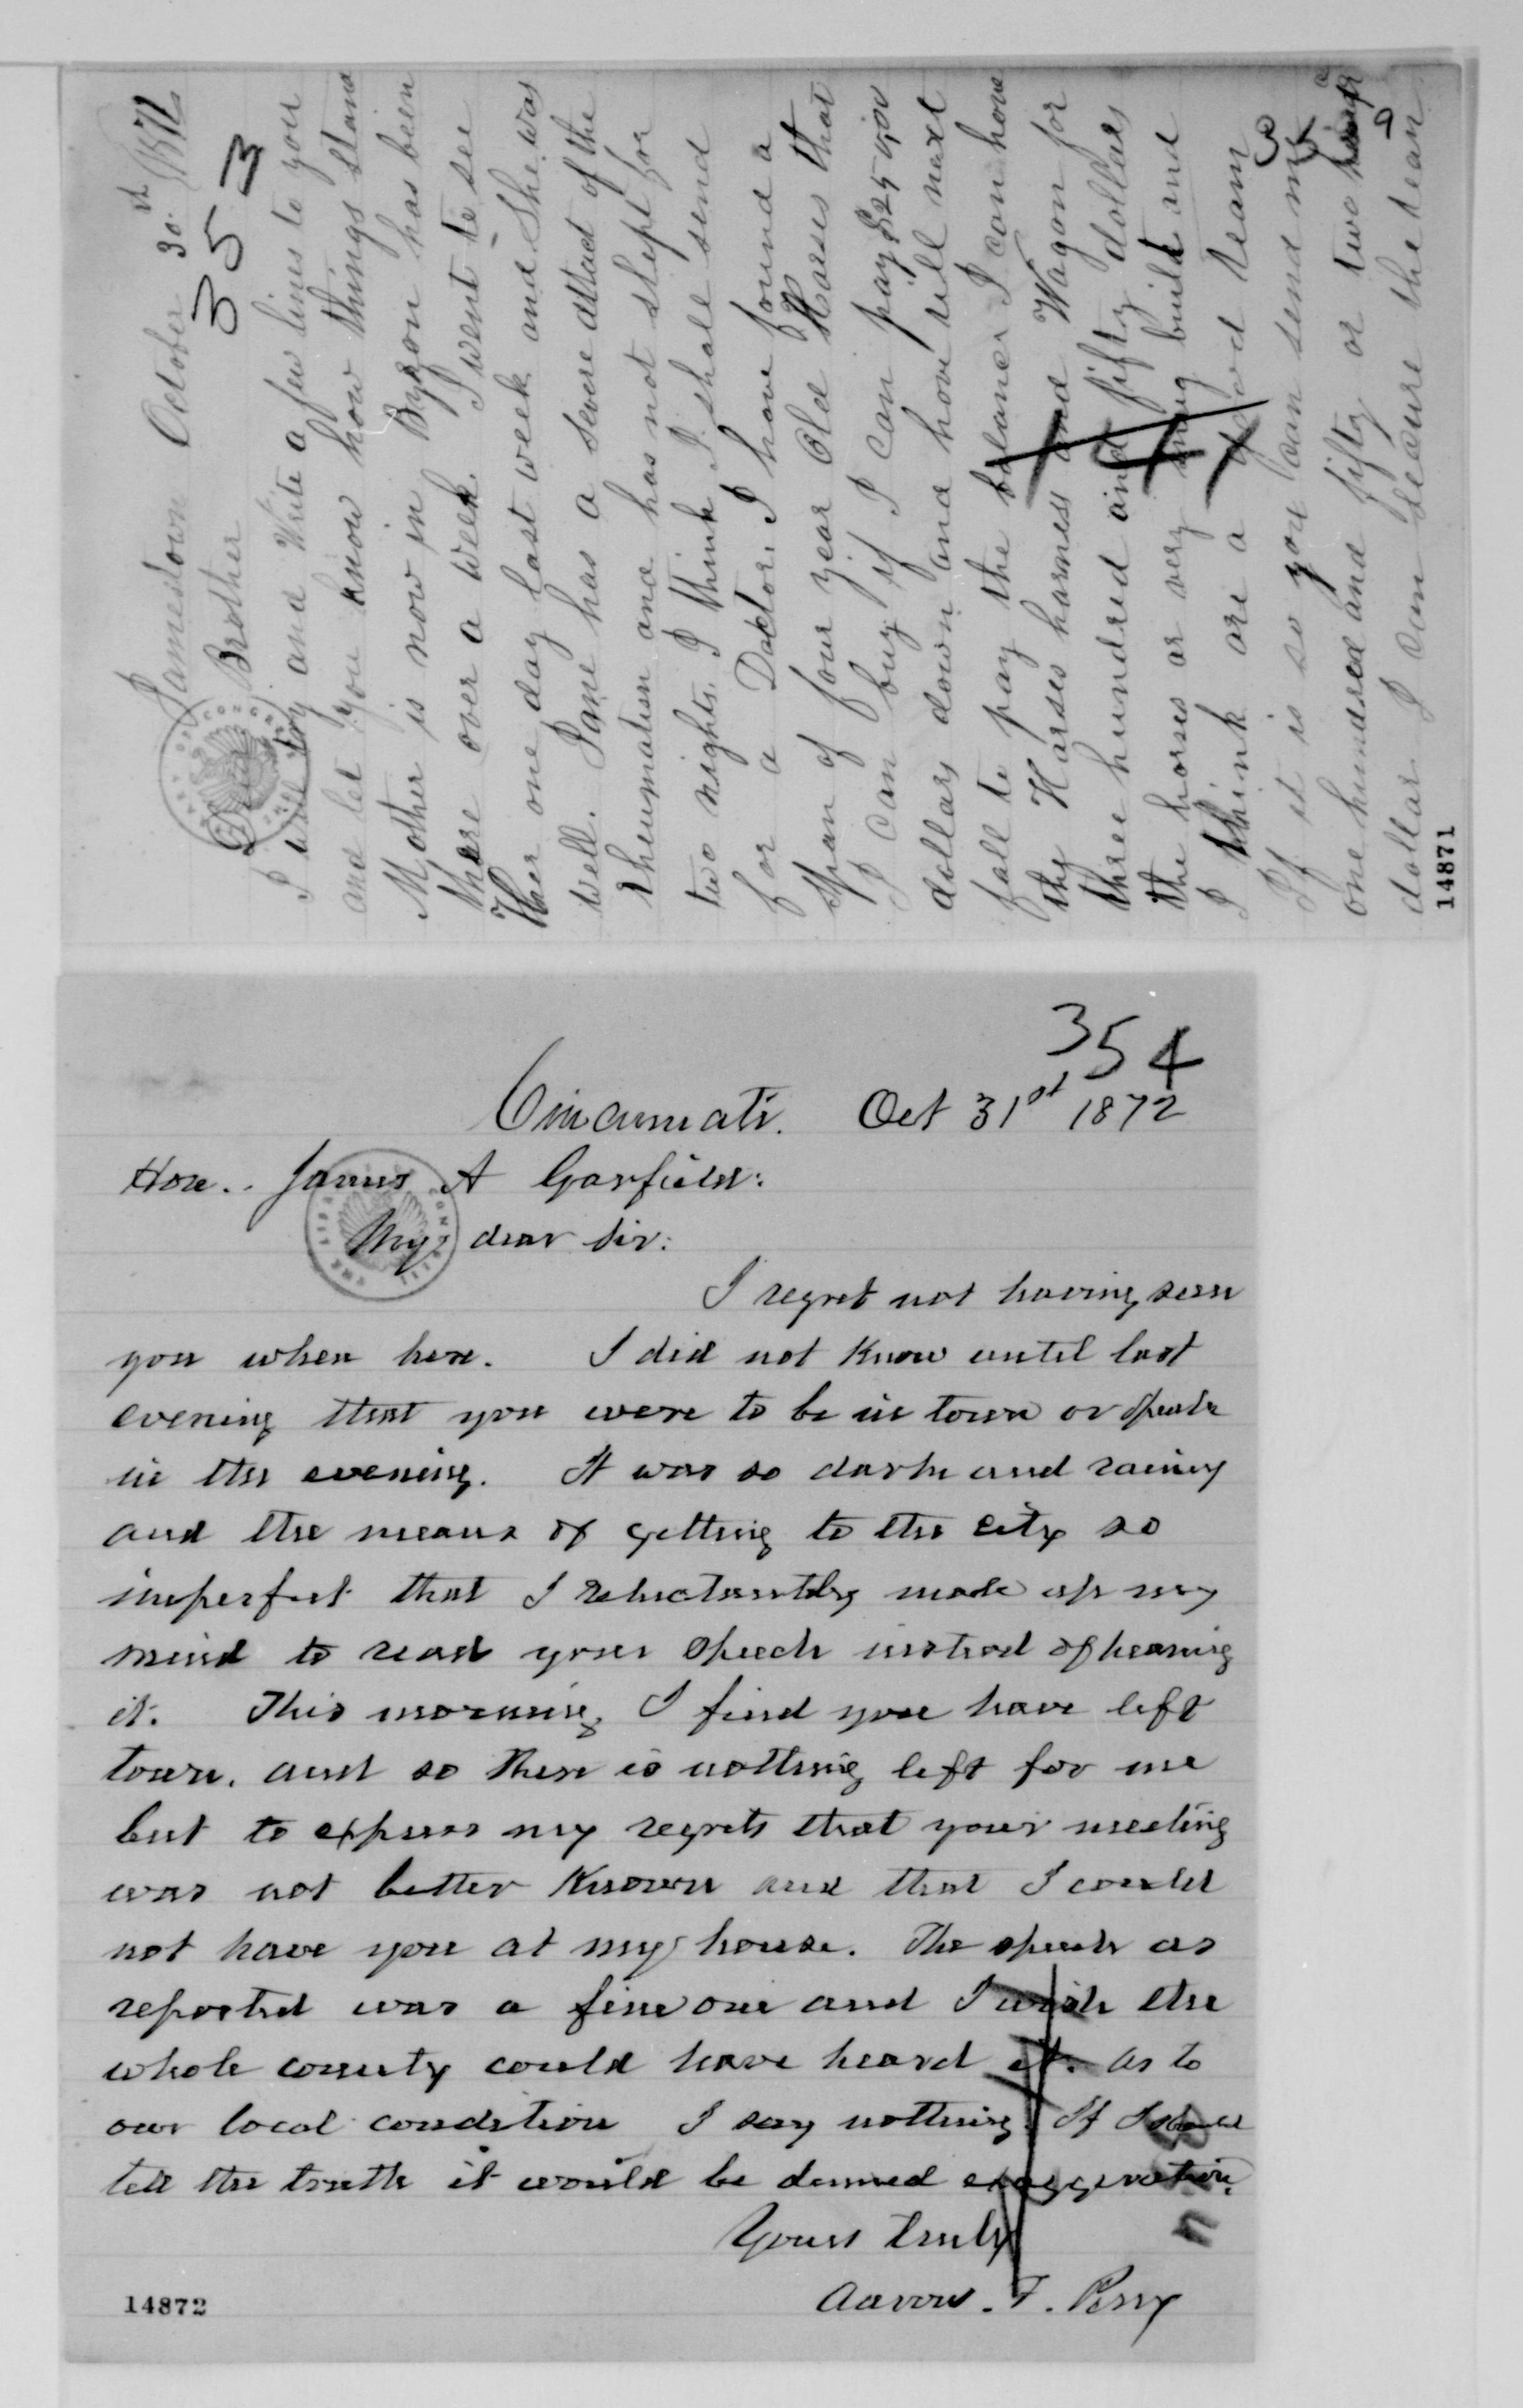 Jamestown October 30.st 1872
353
Dear Brother
I will try and Write a few lines to you
and let you know how things stand
Mother is now in Byron has been
there over a week. I went to see
Her one day last week and She was
well. Jane has a severe attact of the
rheumatism and has not slept for
two nights. I think I shall send
for a Doctor. I have found a
span of four year Old Horses that
I can buy if I can pay $25
dollars down and have till next
fall to pay the balance I can have
the Horses harness and Wagon for
three hundred and fifty dollars
the horses ar very snug built and
I think are a good team
If it is so you can send me
one hundred and fifty or two
dollar I can secure the team
14871
354
Cincinnati. Oct 31st 1872
Hon. James A Garfield:
My dear Sir:
I regret not having seen
you when here. I did not know until last
evening that you were to be in town or speak
in the evening. It was so dark and rainy
and the means of getting to the city so
imperfect that I reluctantly made up my
mind to read your speech instead of hearing
it. This morning I find you have left
town, and so there is nothing left for me
but to express my regrets that your meeting
was not better known and that I could
not have you at my house. The speech as
reported was a fine one and I wish the
whole county could have heard it. As to
our local condition I say nothing. If I should
tell the truth it would be deemed exaggeration.
Yours truly
Aaron. F. Perry
14872